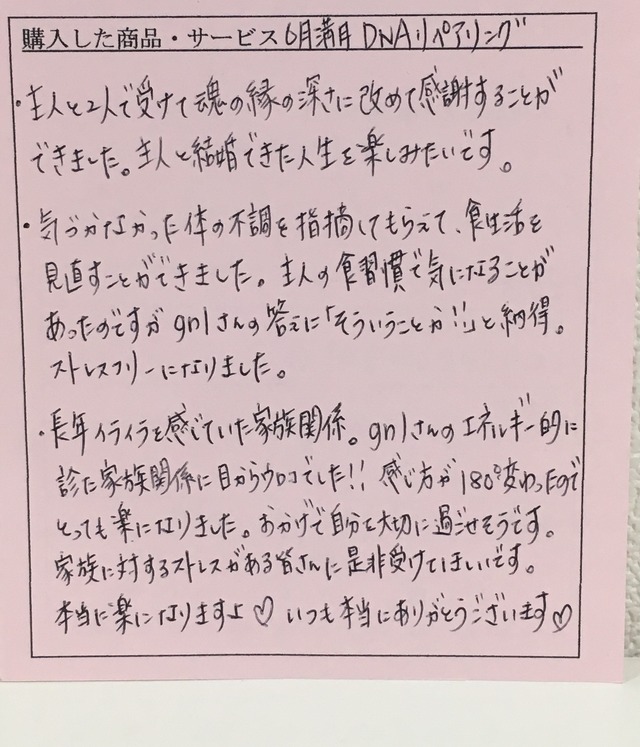 購入した商品・サービス 6月満月 DNAリペアリング
・主人と2人で受けて魂の縁の深さに改めて感謝することが
できました。主人と結婚できた人生を楽しみたいです。
・気づかなかった体の不調を指摘してもらえて、食生活を
見直すことができました。主人の食習慣で気になることが
あったのですがgnlさんの答えに「そういうことか!!」と納得。
ストレスフリーになりました。
・長年イライラを感じていた家族関係。gnlさんのエネルギー的に
診た家族関係に目からウロコでした!! 感じ方が180°変わったので
とっても楽になりました。おかげで自分を大切に過ごせそうです。
家族に対するストレスがある皆さんに是非受けてほしいです。
本当に楽になりますよ♡ いつも本当にありがとうございます♡